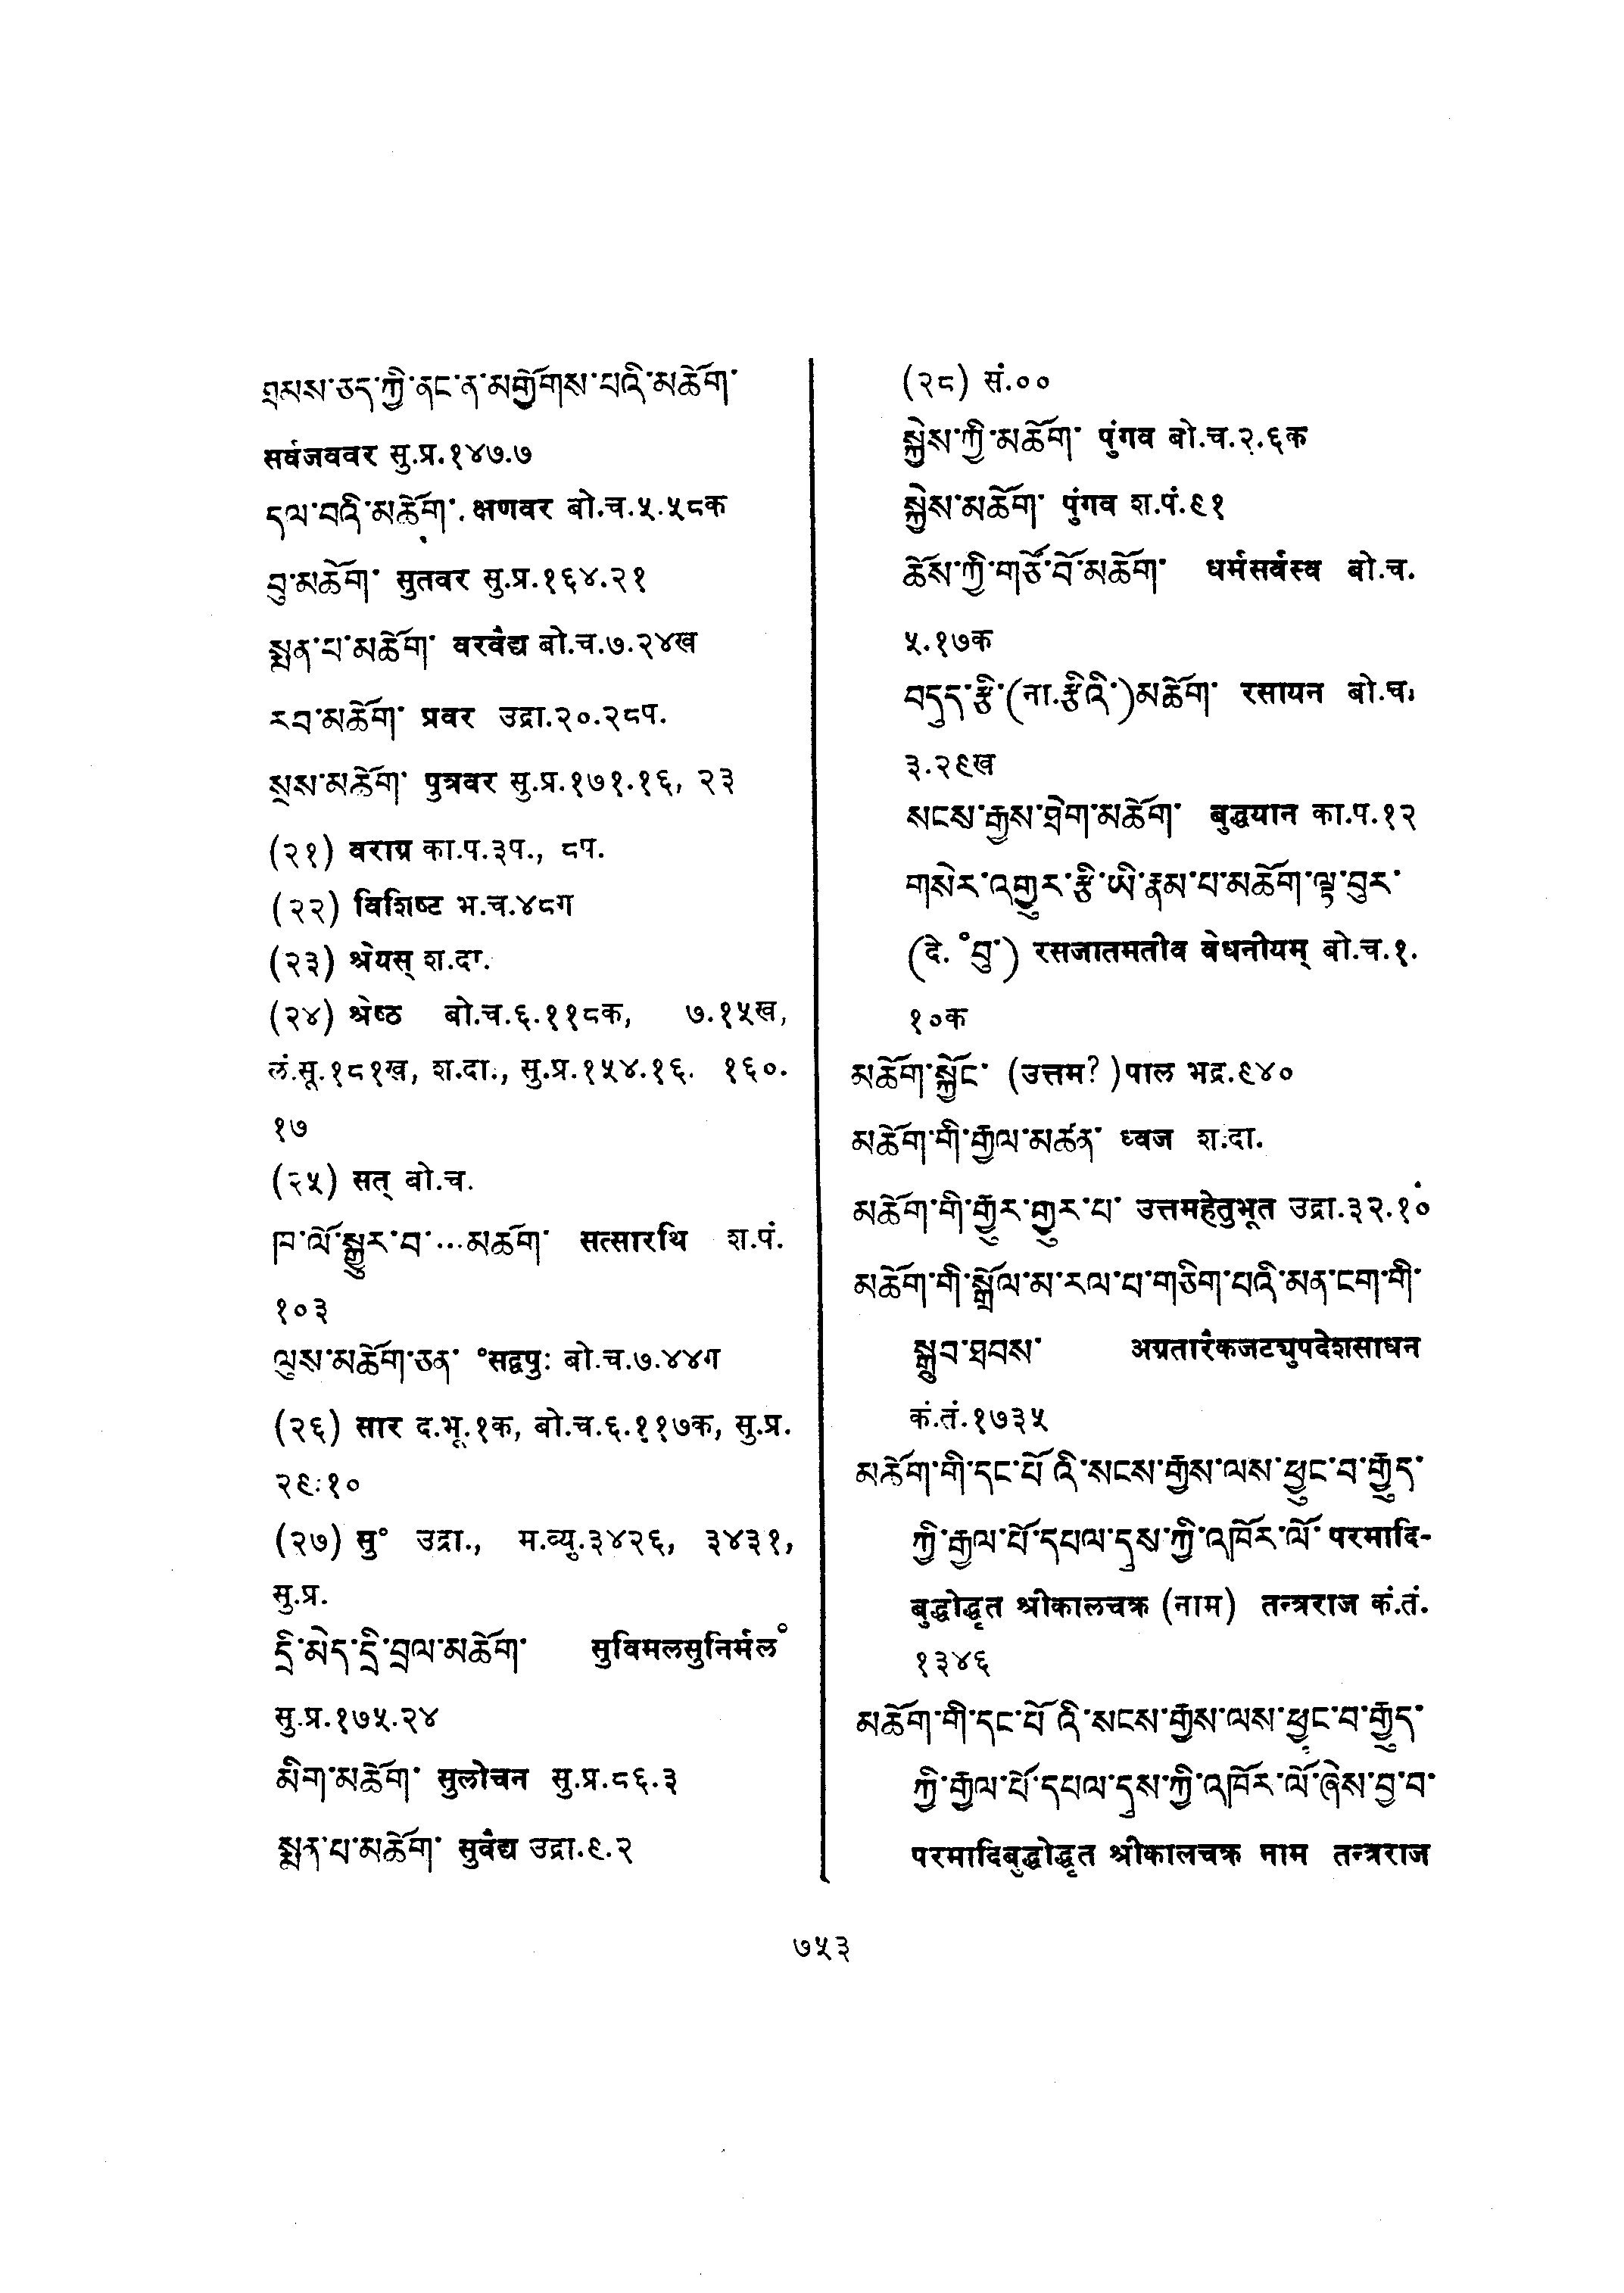 ཐམས་ཅད་ཀྱི་ནང་ན་མགྱོགས་པའི་མཆོག་
सर्वजववर सु.प्र.१४७.७
དལ་བའི་མཆོག་ क्षणवर बो.च.५.५८क
བུ་མཆོག་ सुतवर सु.प्र.१६४.२१
སྨན་པ་མཆོག་ वरवैद्य बो.च.७.२४ख
རབ་མཆོག་ प्रवर उद्रा.२०.२८प.
སྲས་མཆོག་ पुत्रवर सु.प्र.१७१.१६, २३
(२१) वराग्र का.प.३प., ८प.
(२२) विशिष्ट भ.च.४८ग
(२३) श्रेयस् श.दा.
(२४) श्रेष्ठ बो.च.६.११८क, ७.१५ख,
लं.सू.१८१ख, श.दा., सु.प्र.१५४.१६. १६०.
१७
(२५) सत् बो.च.
ཁ་ལོ་སྒྱུར་བ་...མཆོག་ सत्सारथि श.पं.
१०३
ལུས་མཆོག་ཅན་ °सद्वपुः बो.च.७.४४ग
(२६) सार द.भू.१क, बो.च.६.११७क, सु.प्र.
२९.१०
(२७) सु° उद्रा., म.व्यु.३४२६, ३४३१,
सु.प्र.
དྲི་མེད་དྲི་བྲལ་མཆོག་ सुविमलसुनिर्मल°
सु.प्र.१७५.२४
མིག་མཆོག་ सुलोचन सु.प्र.८६.३
སྨན་པ་མཆོག་ सुवैद्य उद्रा.९.२
(२८) सं.००
སྐྱེས་ཀྱི་མཆོག་ पुंगव बो.च.२.६क
སྐྱེས་མཆོག་ पुंगव श.पं.९१
ཆོས་ཀྱི་གཙོ་བོ་མཆོག་ धर्मसर्वस्व बो.च.
५.१७क
བདུད་རྩི་(ना.རྩིའི་)མཆོག་ रसायन बो.च.
३.२९ख
སངས་རྒྱས་ཐེག་མཆོག་ बुद्धयान का.प.१२
གསེར་འགྱུར་རྩི་ཡི་རྣམ་པ་མཆོག་ལྟ་བུར་
(दे. °བུ་) रसजातमतीव वेधनीयम् बो.च.१.
१०क
མཆོག་སྐྱོང་ (उत्तम?)पाल भद्र.९४०
མཆོག་གི་རྒྱལ་མཚན་ ध्वज श.दा.
མཆོག་གི་རྒྱུར་གྱུར་པ་ उत्तमहेतुभूत उद्रा.३२.१०
མཆོག་གི་སྒྲོལ་མ་རལ་པ་གཅིག་པའི་མན་ངག་གི་
སྒྲུབ་ཐབས་ अग्रतारैकजट्युपदेशसाधन
कं.तं.१७३५
མཆོག་གི་དང་པོ་འི་སངས་རྒྱས་ལས་ཕྱུང་བ་རྒྱུད་
ཀྱི་རྒྱལ་པོ་དཔལ་དུས་ཀྱི་འཁོར་ལོ་ परमादि-
बुद्धोद्धृत श्रीकालचक्र (नाम) तन्त्रराज कं.तं.
१३४६
མཆོག་གི་དང་པོ་འི་སངས་རྒྱས་ལས་ཕྱུང་བ་རྒྱུད་
ཀྱི་རྒྱལ་པོ་དཔལ་དུས་ཀྱི་འཁོར་ལོ་ཞེས་བྱ་བ་
परमादिबुद्धोद्धृत श्रीकालचक्र नाम तन्त्रराज
७५३